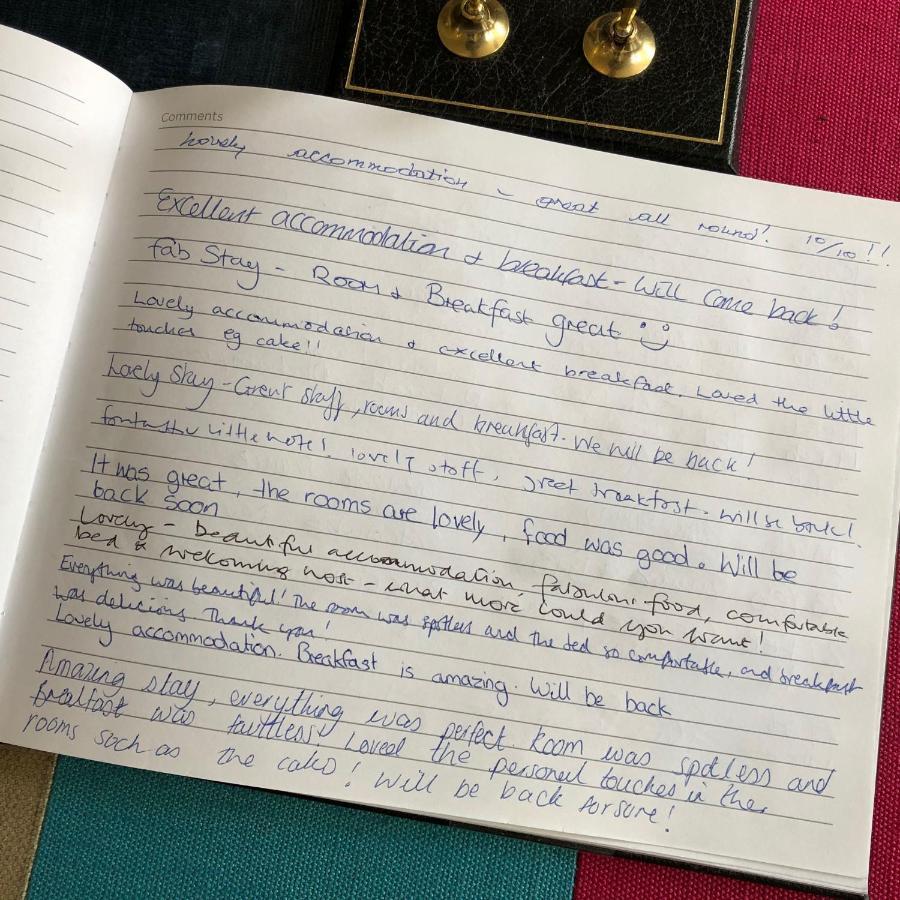 Comments
Lovely accommodation - great all round! 10/10!!
Excellent accommodation & breakfast - Will come back!
Fab Stay - Room & Breakfast great :)
Lovely accommodation & excellent breakfast. Loved the little
touches eg cake!!
Lovely Stay - Great staff, rooms and breakfast. We will be back!
fantastic little hotel, lovely staff, great breakfast. will be back!
It was great, the rooms are lovely, food was good. Will be
back soon
Lovely - beautiful accommodation, fabulous food, comfortable
bed & welcoming host - what more could you want!
Everything was beautiful! The room was spotless and the bed so comfortable, and breakfast
was delicious. Thank you!
Lovely accommodation. Breakfast is amazing. Will be back
Amazing stay, everything was perfect. Room was spotless and
Breakfast was faultless! Loved the personal touches in the
rooms such as the cake! Will be back for sure!